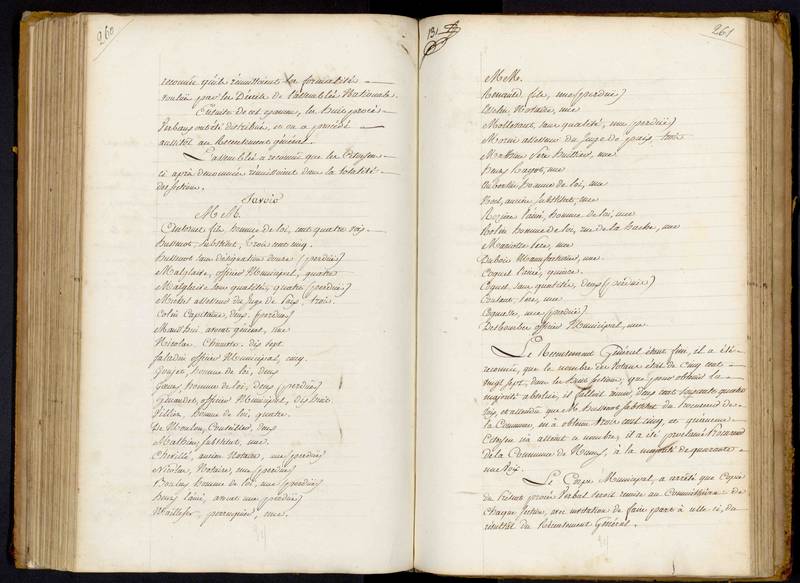 260
reconnu qu'ils réunissaient les formalités
voulues par les Décrets de l'assemblée Nationale.
Ensuite de cet examen, les huit procès
Verbaux ont été distribués, et on a procédé
aussitôt au Recensement général.
L'assemblée a reconnu que les Citoyens
ci après dénommés réunissaient dans la totalité
des sections.
Savoir
M M.
fils, homme de loi, cent quatre voix.
Bussenot, Substitut, trois cent cinq.
Bussenot sans désignation douze (perdues)
Malglaive, officier Municipal, quatre
Malglaive sans qualité, quatre (perdues)
Michel assesseur du Juge de Paix, trois
Colin Capitaine, deux (perdues)
avocat général, une
Nicolas Chauvote, dix sept
Saladin officier Municipal, cinq
homme de loi, deux
homme de loi, deux (perdues)
Génaudet, officier Municipal, dix huit
homme de loi, quatre.
De Moulon, Conseiller, deux
Mathieu Substitut, une
ancien Notaire, une (perdue)
Nicolas, Notaire, une (perdue)
Boulay homme de loi, une (perdue)
l'ainé, avocat une (perdue)
perruquier, une.
131
261
M M.
fils, une (perdue)
Notaire, une
Mollevaut, sans qualité, une (perdue)
assesseur du Juge de paix, trois
Père Huissier, une
une
homme de loi, une
ancien Substitut, une
Rozière l'ainé, homme de loi, une
homme de loi, rue de la hache, une
Mariotte Père, une
Dubois Manufacturier, une
Coquet l'ainé, quinze.
Coquet sans qualité, deux (perdues)
Coulant, Père, une
Coquette, une (perdue)
officier Municipal, une
Le Recensement Général étant fini, il a été
reconnu, que le nombre des Votans était de cinq cent
vingt sept, dans les huit sections, que pour obtenir la
majorité absolue, il fallait réunir, deux cent soixante quatre
voix, et attendu que M. Bussenot Substitut du Procureur de
la Commune, en a obtenu trois cent cinq, et qu'aucun
Citoyen n'a atteint ce nombre, il a été proclamé Procureur
de la Commune de Nancy, à la majorité de quarante
une Voix.
Le Corps Municipal, a arrêté que Copie
du Présent procès Verbal serait remise au Commissaire de
Chaque Section, avec invitation de faire part à celle ci, du
résultat du Recensement Général.